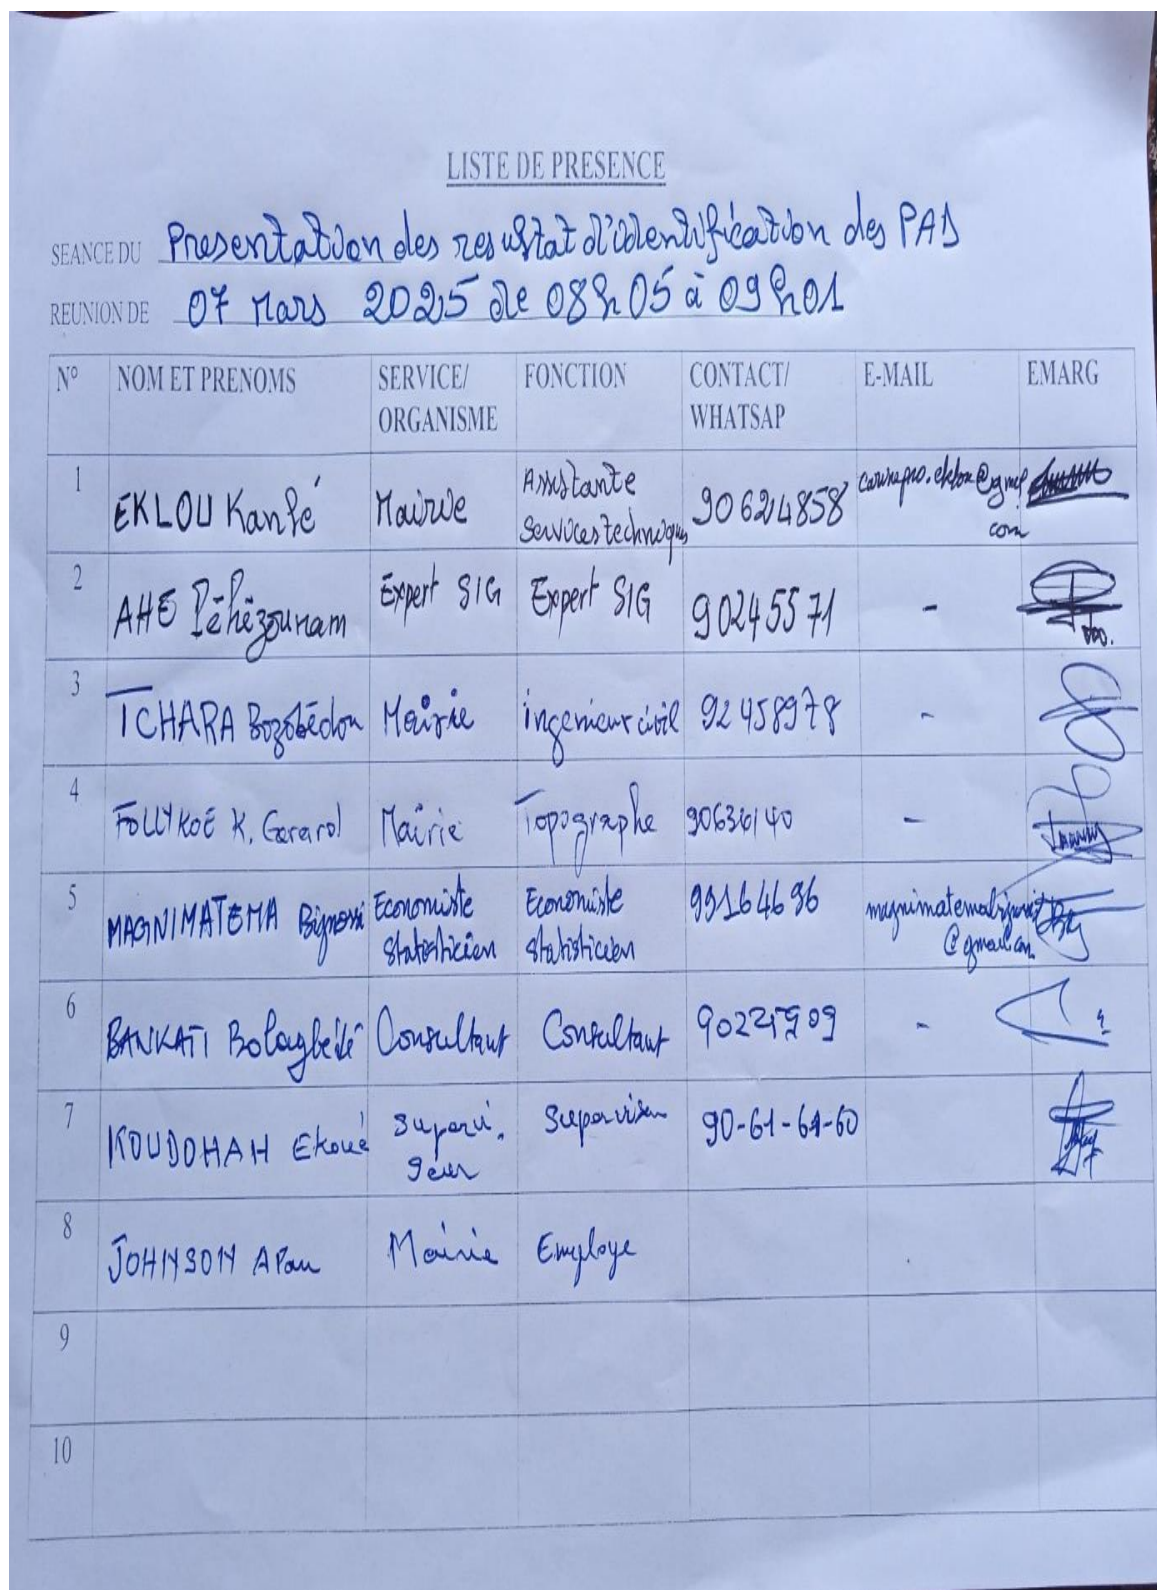 LISTE DE PRESENCE
SEANCE DU Presentation des resultat d'identification des PAD
REUNION DE 07 Mars 2025 de 08h05 à 09h01
N° NOM ET PRENOMS SERVICE/ ORGANISME FONCTION CONTACT/ WHATSAP E-MAIL EMARG
1 EKLOU Kanfé Mairie Assistante Services techniques 90624858
2 AHE Pèhèzounam Expert SIG Expert SIG 90245571 -
3 TCHARA Bozobèdou Mairie ingenieur civil 92458978 -
4 FOLLYKOE K. Gerard Mairie Topographe 90636140 -
5 MAGNIMATEMA Economiste Statisticien Economiste Statisticien 99164696 @gmail.com
6 BANKATI Consultant Consultant -
7 KOUDOHAH Ekoué Supervi. seur 90-61-61-60
8 JOHNSON Mairie Employe
9
10